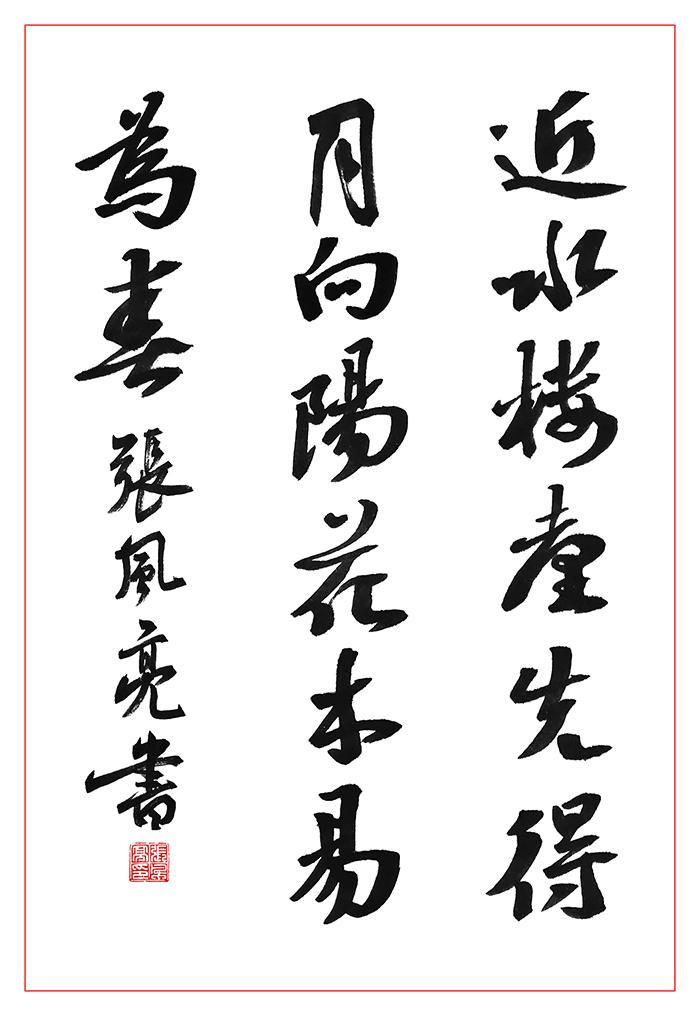 近水楼臺先得
月向陽花木易
為春 張風亮書
張風亮印